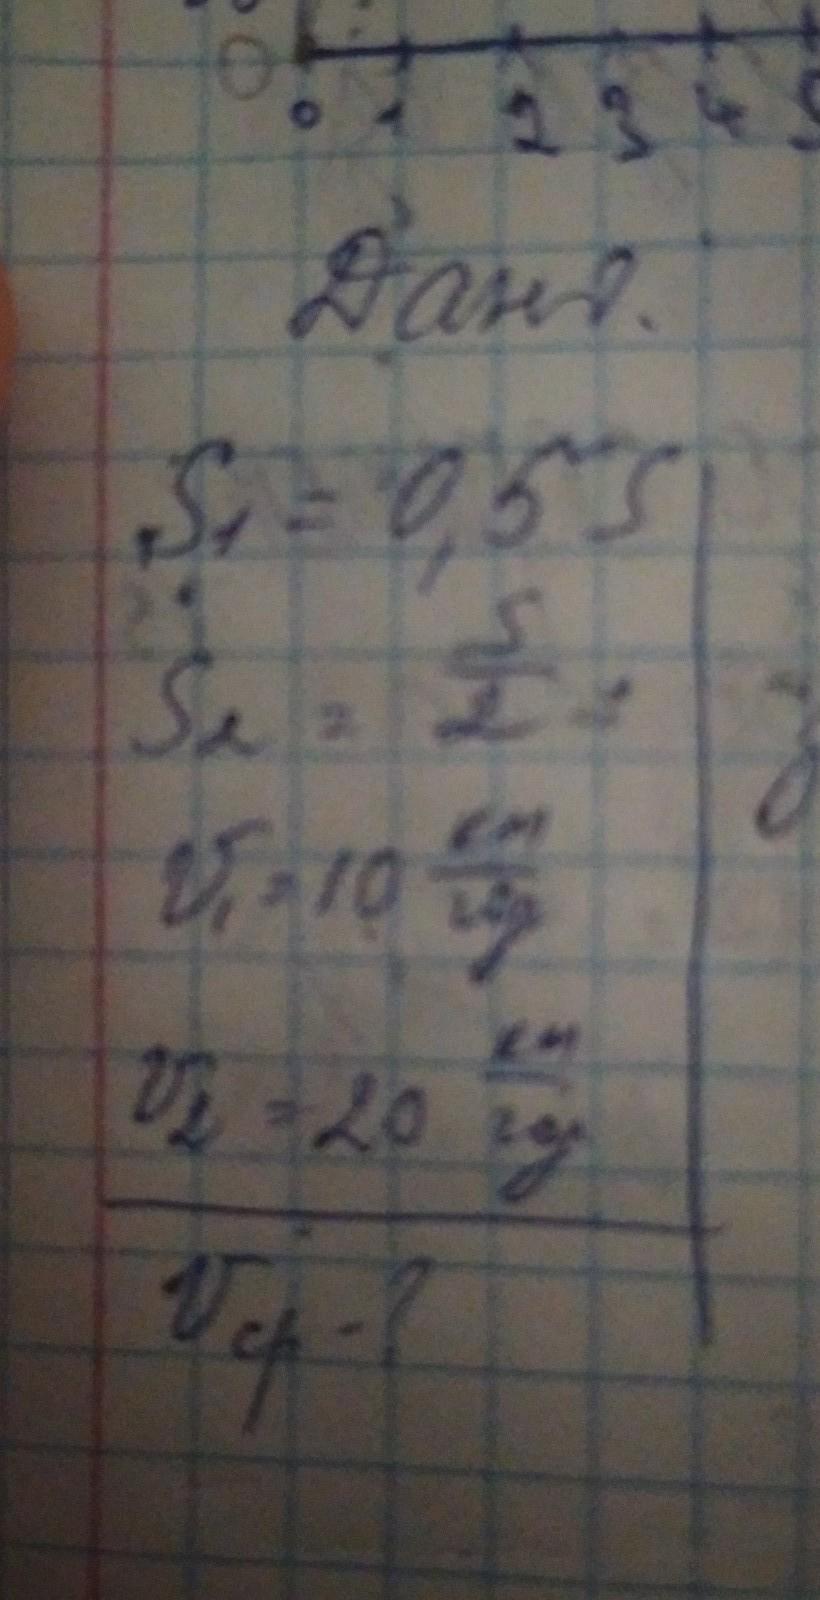 0
0 1 2 3 4 5
Дано.
S₁ = 0,5 S
S₂ = S/2 =
V₁ = 10 км/год
V₂ = 20 км/год
Vср - ?